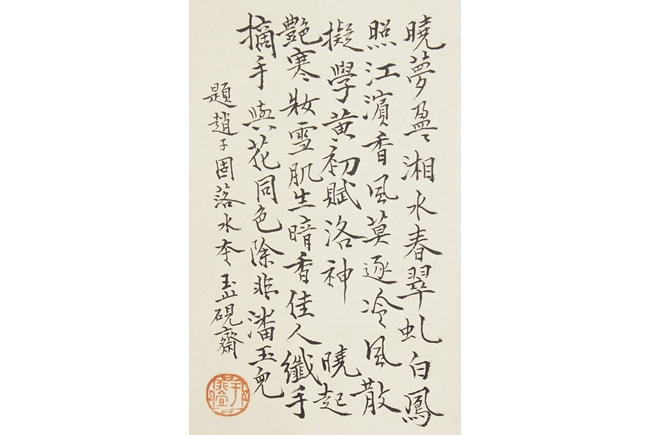 曉夢盈〻湘水春翠虬白鳳
照江濱香風莫逐冷風散
擬學黃初賦洛神 曉起
艷寒妝雪肌生暗香佳人纖手
摘手與花同色除非潘玉兒
題趙子固落水 硯齋